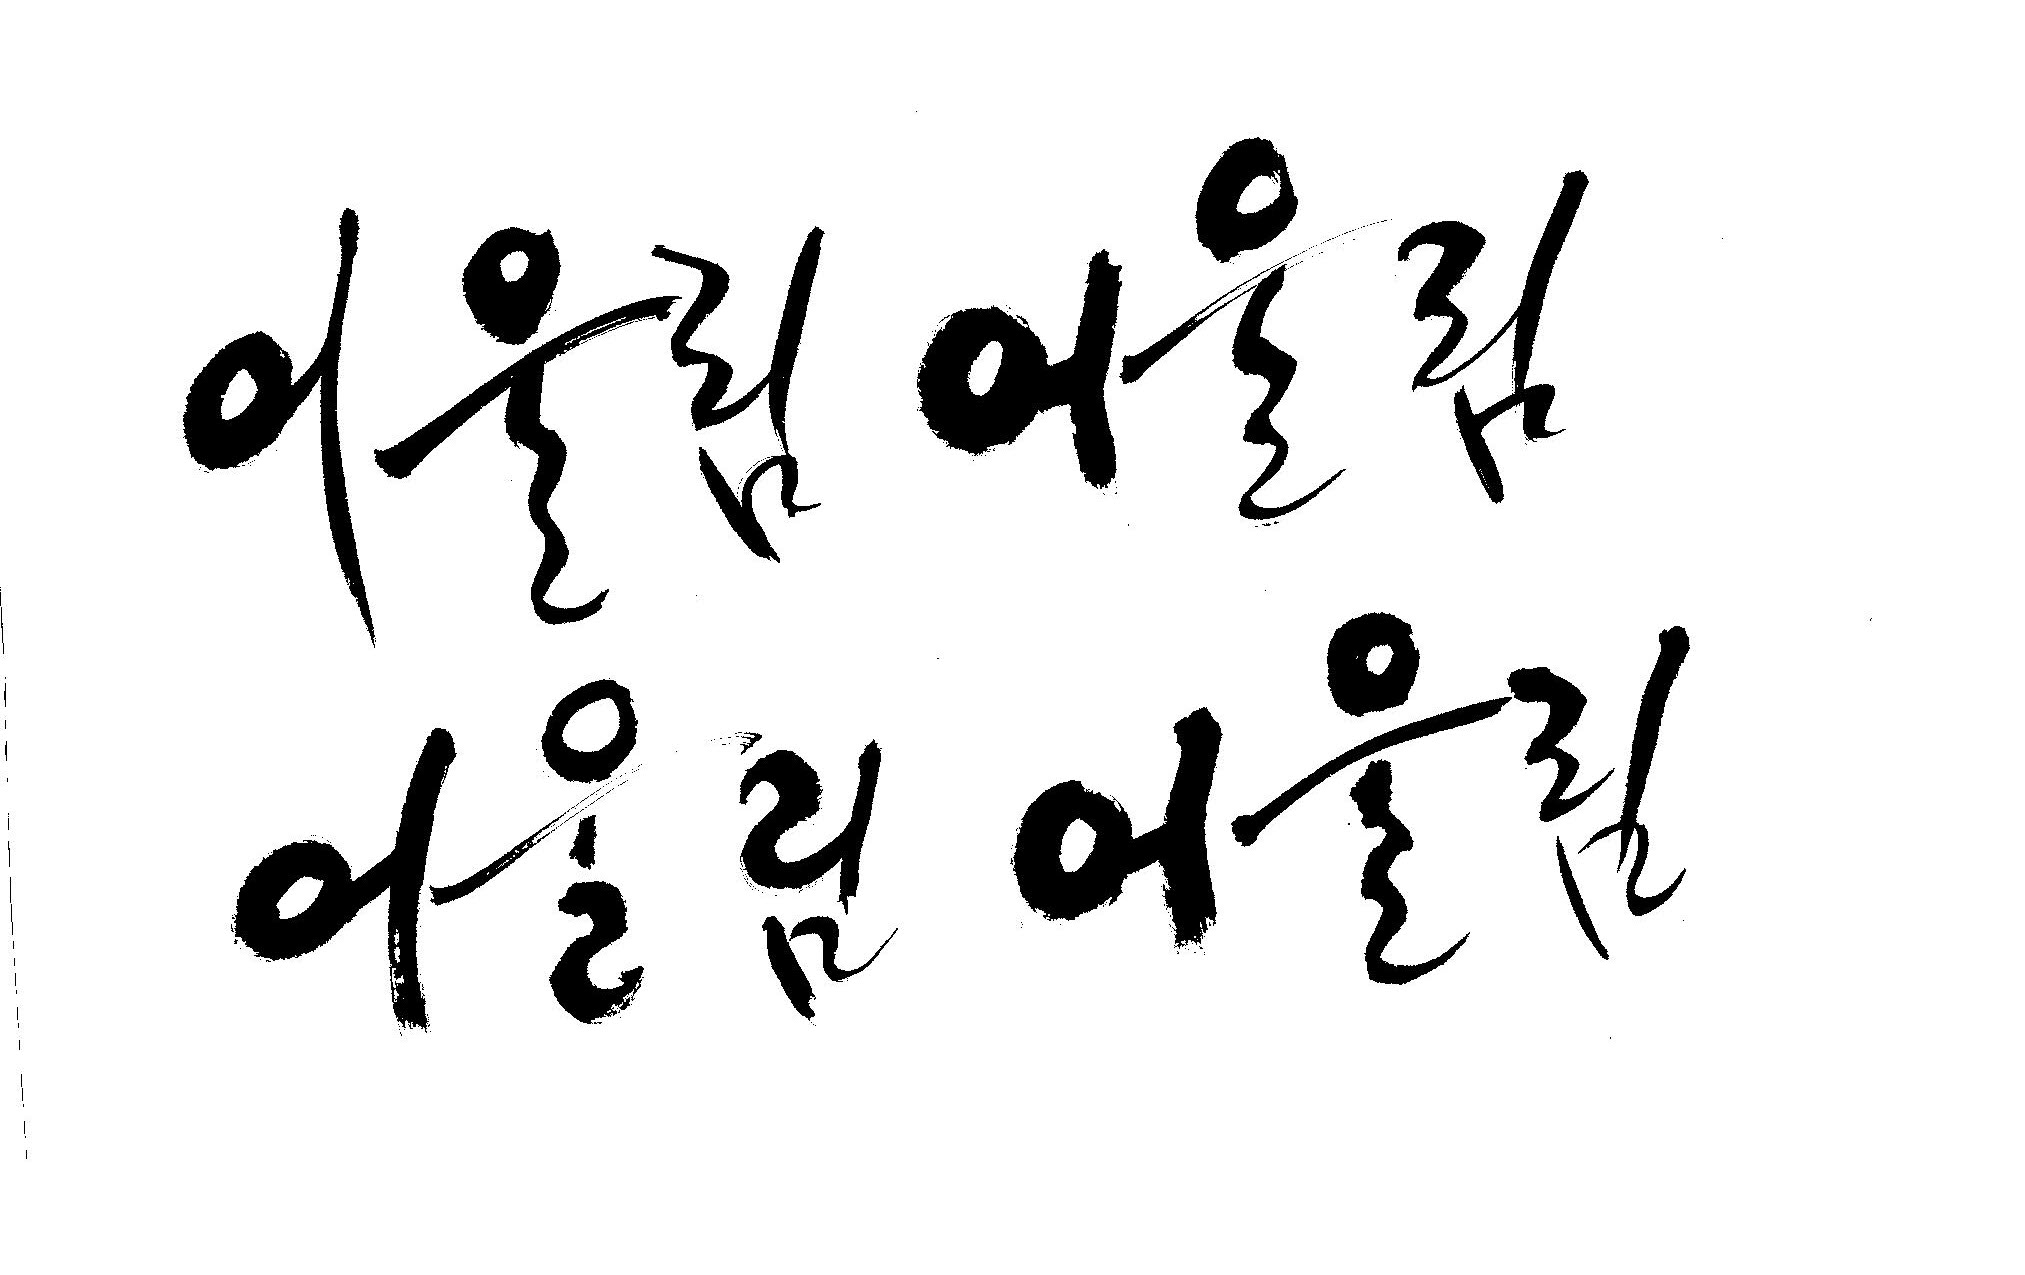 어울림 어울림
어울림 어울림